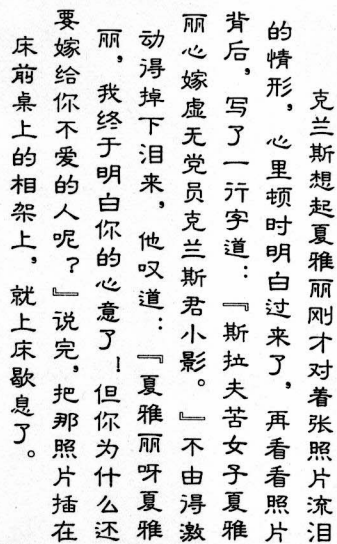 克兰斯想起夏雅丽刚才对着张照片流泪
的情形，心里顿时明白过来了，再看看照片
背后，写了一行字道：『斯拉夫苦女子夏雅
丽心嫁虚无党员克兰斯君小影。』不由得激
动得掉下泪来，他叹道：『夏雅丽呀夏雅
丽，我终于明白你的心意了！但你为什么还
要嫁给你不爱的人呢？』说完，把那照片插在
床前桌上的相架上，就上床歇息了。